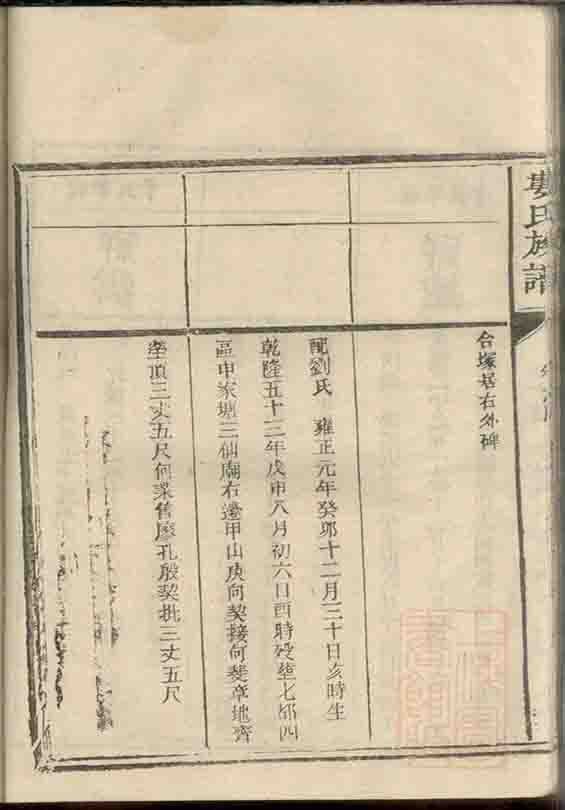 婁氏族譜
合塚居右外碑
配劉氏　雍正元年癸卯十二月三十日亥時生
乾隆五十三年戊申八月初六日酉時歿塟七都四
區申家塘三仙廟右邊甲山庚向契接何斐章地齊
塋頂三丈五尺何梁售廖孔殷契批三丈五尺